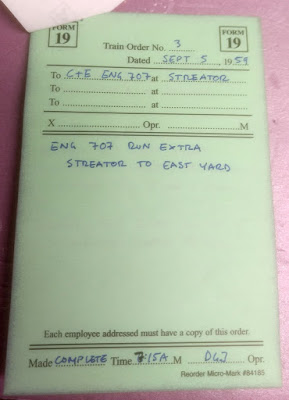 FORM 19 FORM 19
Train Order No. 3
Dated SEPT 5 1959
To C+E ENG 707 at STREATOR
To at
To at
X Opr. M
ENG 707 RUN EXTRA
STREATOR TO EAST YARD
Each employee addressed must have a copy of this order.
Made COMPLETE Time 715A M DGJ Opr.
Reorder Micro-Mark #84165